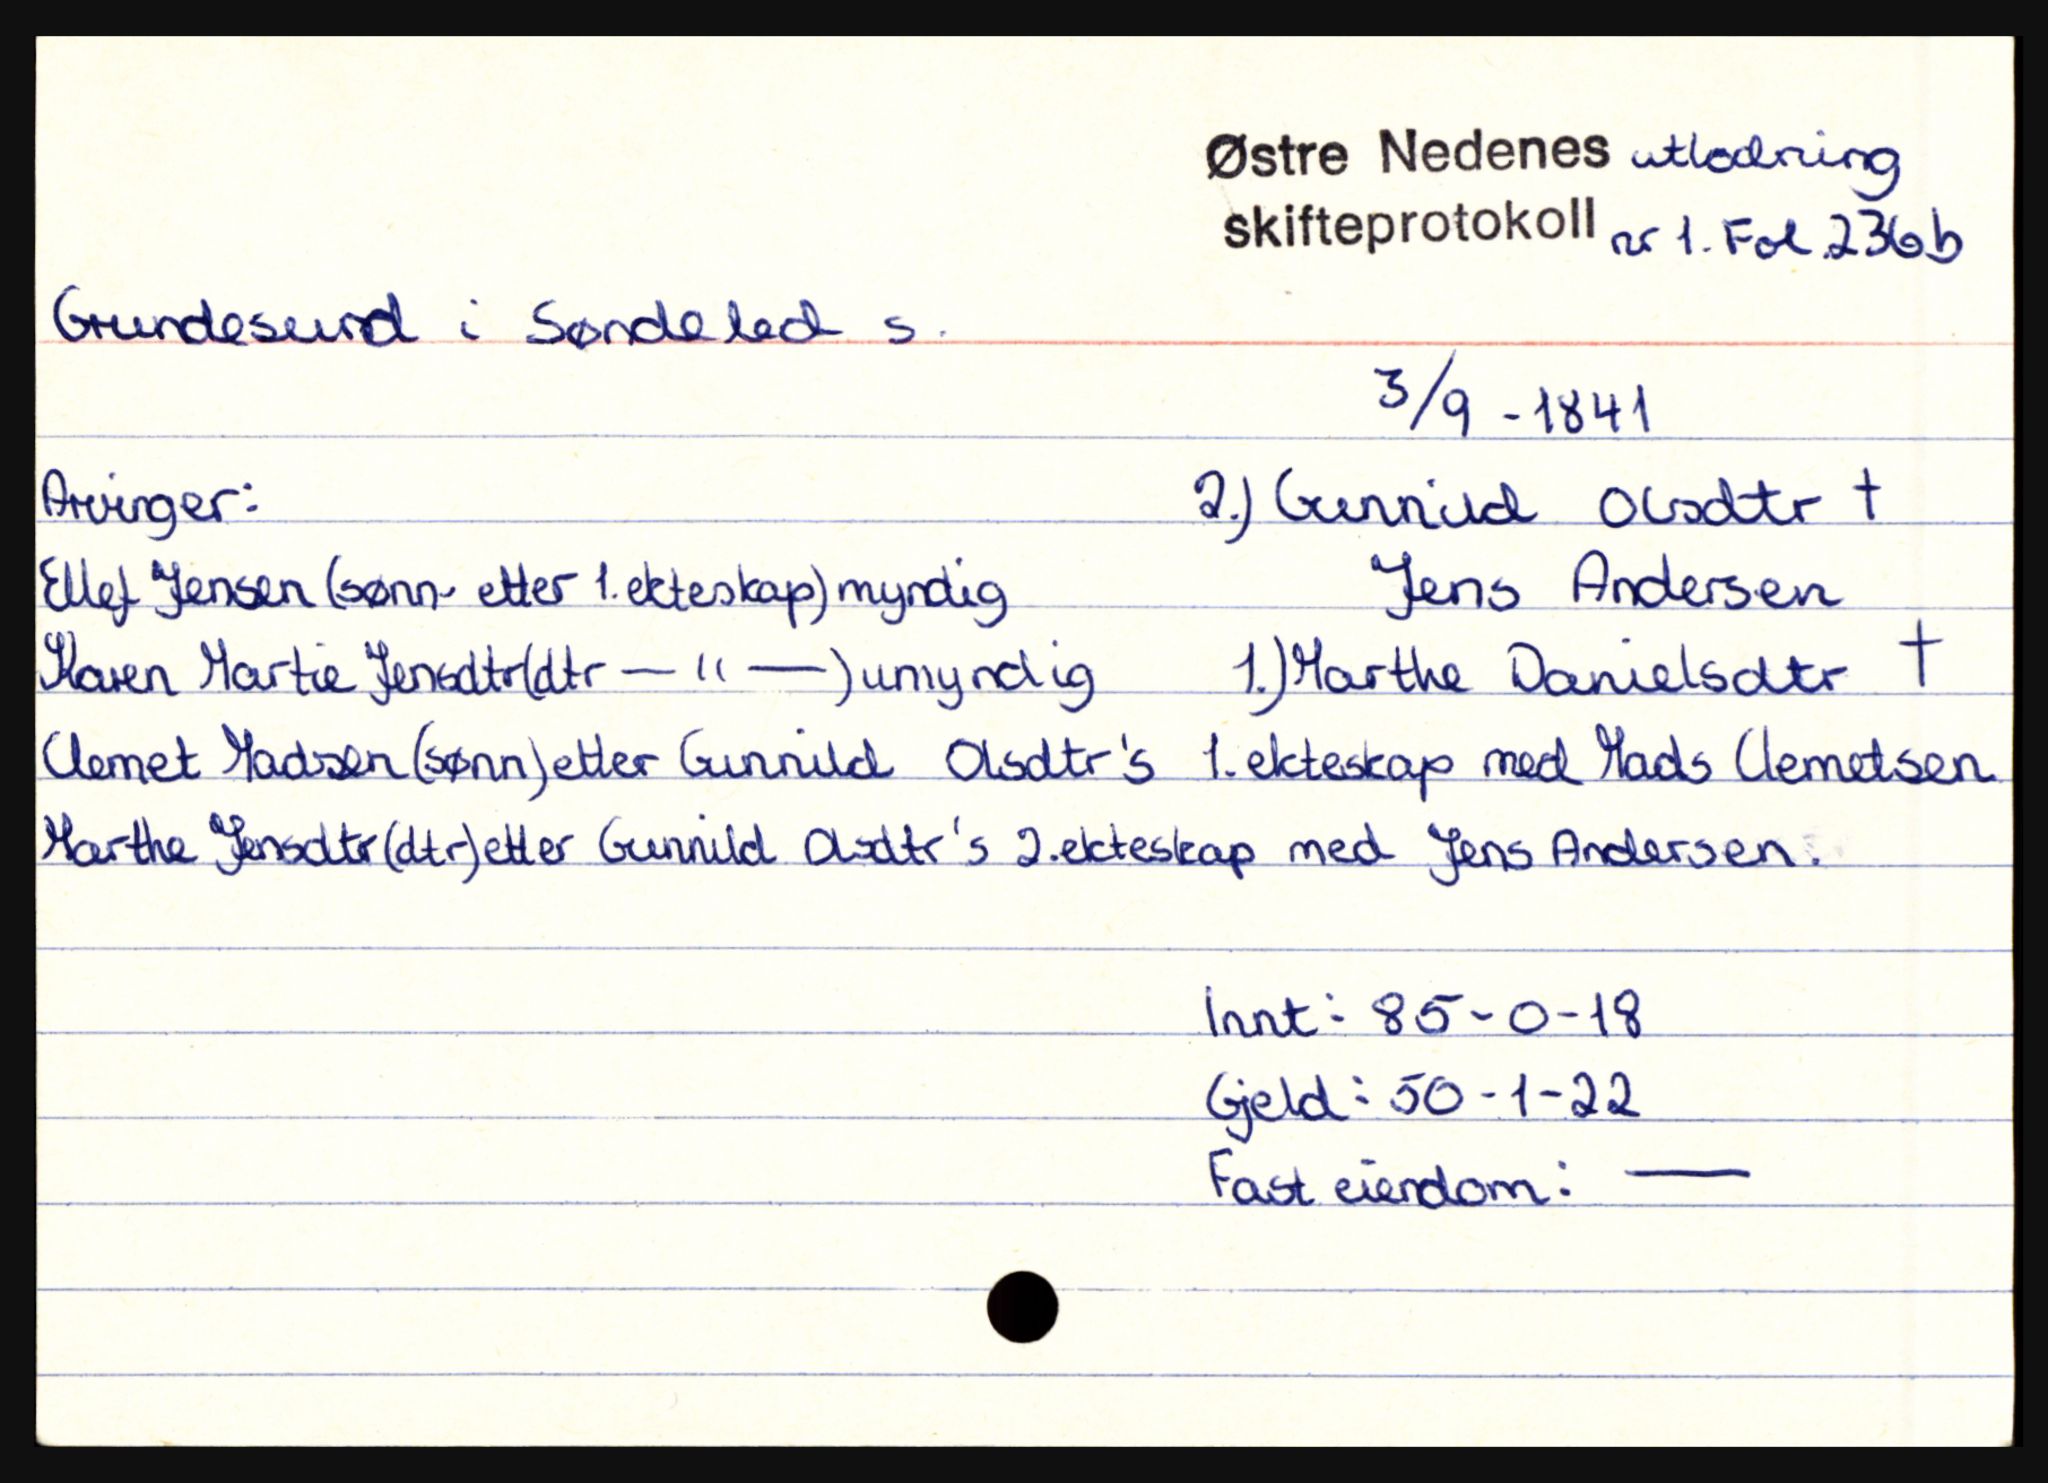 Østre Nedenes utlodning
skifteprotokoll nr 1. Fol. 236b
Grundesund i Søndeled s.
3/9 - 1841
Arvinger:
2.) Gunnild Olsdtr †
Ellef Jensen (sønn etter 1. ekteskap) myndig
Jens Andersen
Karen Martie Jensdtr (dtr — " —) umyndig
1.) Marthe Danielsdtr †
Clemet Madsen (sønn) etter Gunnild Olsdtr's 1. ekteskap med Mads Clemetsen
Marthe Jensdtr (dtr) etter Gunnild Olsdtr's 2. ekteskap med Jens Andersen.
Innt: 85-0-18
Gjeld: 50-1-22
Fast eiendom: —